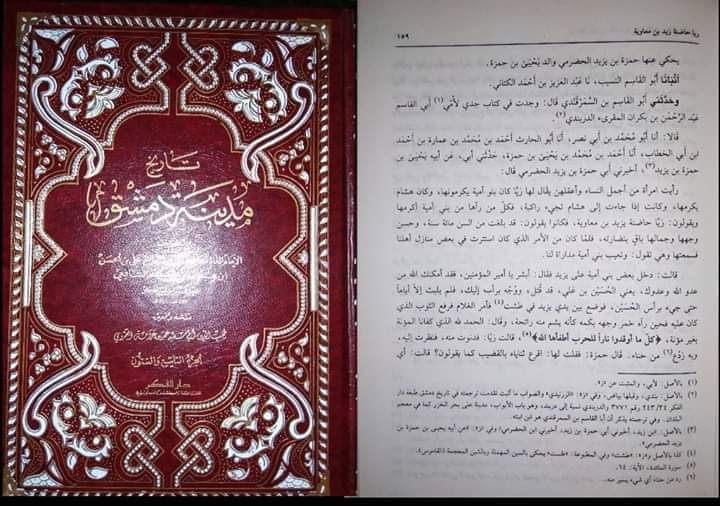 تاريخ
مدينة دمشق
دراسة وتحقيق
الجزء التاسع والستون
دار الفكر
ريا حاضنة يزيد بن معاوية
١٥٩
يحكي عنها حمزة بن يزيد الحضرمي والد يَحْيَىٰ بن حمزة.
أنْبَأنا أبُو القاسم النسيب، نَا عَبْد العزيز بن أَحْمَد الكتاني.
وحَدّثَني أبُو القاسم بن السَّمَرْقَنْدي قال: وجدت في كتاب جدي لأمّي(١) أبي القاسم
عَبْد الرَّحْمٰن بن بكران المقرىء الدربندي(٢).
قالا: أنا أبُو مُحَمَّد بن أبي نصر، أنَا أبُو الحارث أحْمَد بن مُحَمَّد بن عمارة بن أَحْمَد
ابن أبي الخطاب، أنَا أَحْمَد بن مُحَمَّد بن يَحْيَىٰ بن حمزة، حَدّثَني أبي، عن أبيه يَحْيَىٰ بن
حمزة بن يزيد(٣)، أخبرني أبي حمزة بن يزيد الحضرمي قال:
رأيت امرأة من أجمل النساء وأعقلهن يقال لها ريّا كان بنو أمية يكرمونها، وكان هشام
يكرمها، وكانت إذا جاءت إلى هشام تجيء راكبة، فكلّ من رآها من بني أمية أكرمها
ويقولون: ريّا حاضنة يزيد بن معاوية، فكانوا يقولون: قد بلغت من السن مائة سنة، وحسن
وجهها وجمالها باقٍ بنضارته، فلمّا كان من الأمر الذي كان استترت في بعض منازل أهلنا
فسمعتها وهي تقول: وتعيب بني أمية مداراة لنا.
قالت: دخل بعض بني أمية على يزيد فقال: أبشر يا أمير المؤمنين، فقد أمكنك الله من
عدو الله وعدوك، يعني الحُسَيْن بن عَلي، قد قُتل، ووُجّه برأسه إليك، فلم يلبث إلّا أياماً
حتى جيء برأس الحُسَيْن، فوضع بين يدي يزيد في طشت(٤) فأمر الغلام فرفع الثوب الذي
كان عليه فحين رآه خمر وجهه بكمه كأنه يشم منه رائحة، وقال: الحمد لله الذي كفانا المؤنة
بغير مؤنة، ﴿كلّ ما أوقدوا ناراً للحرب أطفأها الله﴾(٥)، قالت ريّا: فدنوت منه، فنظرت إليه،
وبه رَدْع(٦) من حناء. قال حمزة: فقلت لها: أقرع ثناياه بالقضيب كما يقولون؟ قالت: أي
(١) بالأصل: لأبي، والمثبت عن «ز».
(٤) كذا بالأصل و«ز»: «طشت» وفي المطبوعة: «طست» يحكى بالسين المهملة وبالشين المعجمة (القاموس).
(٥) سورة المائدة، الآية: ٦٤.